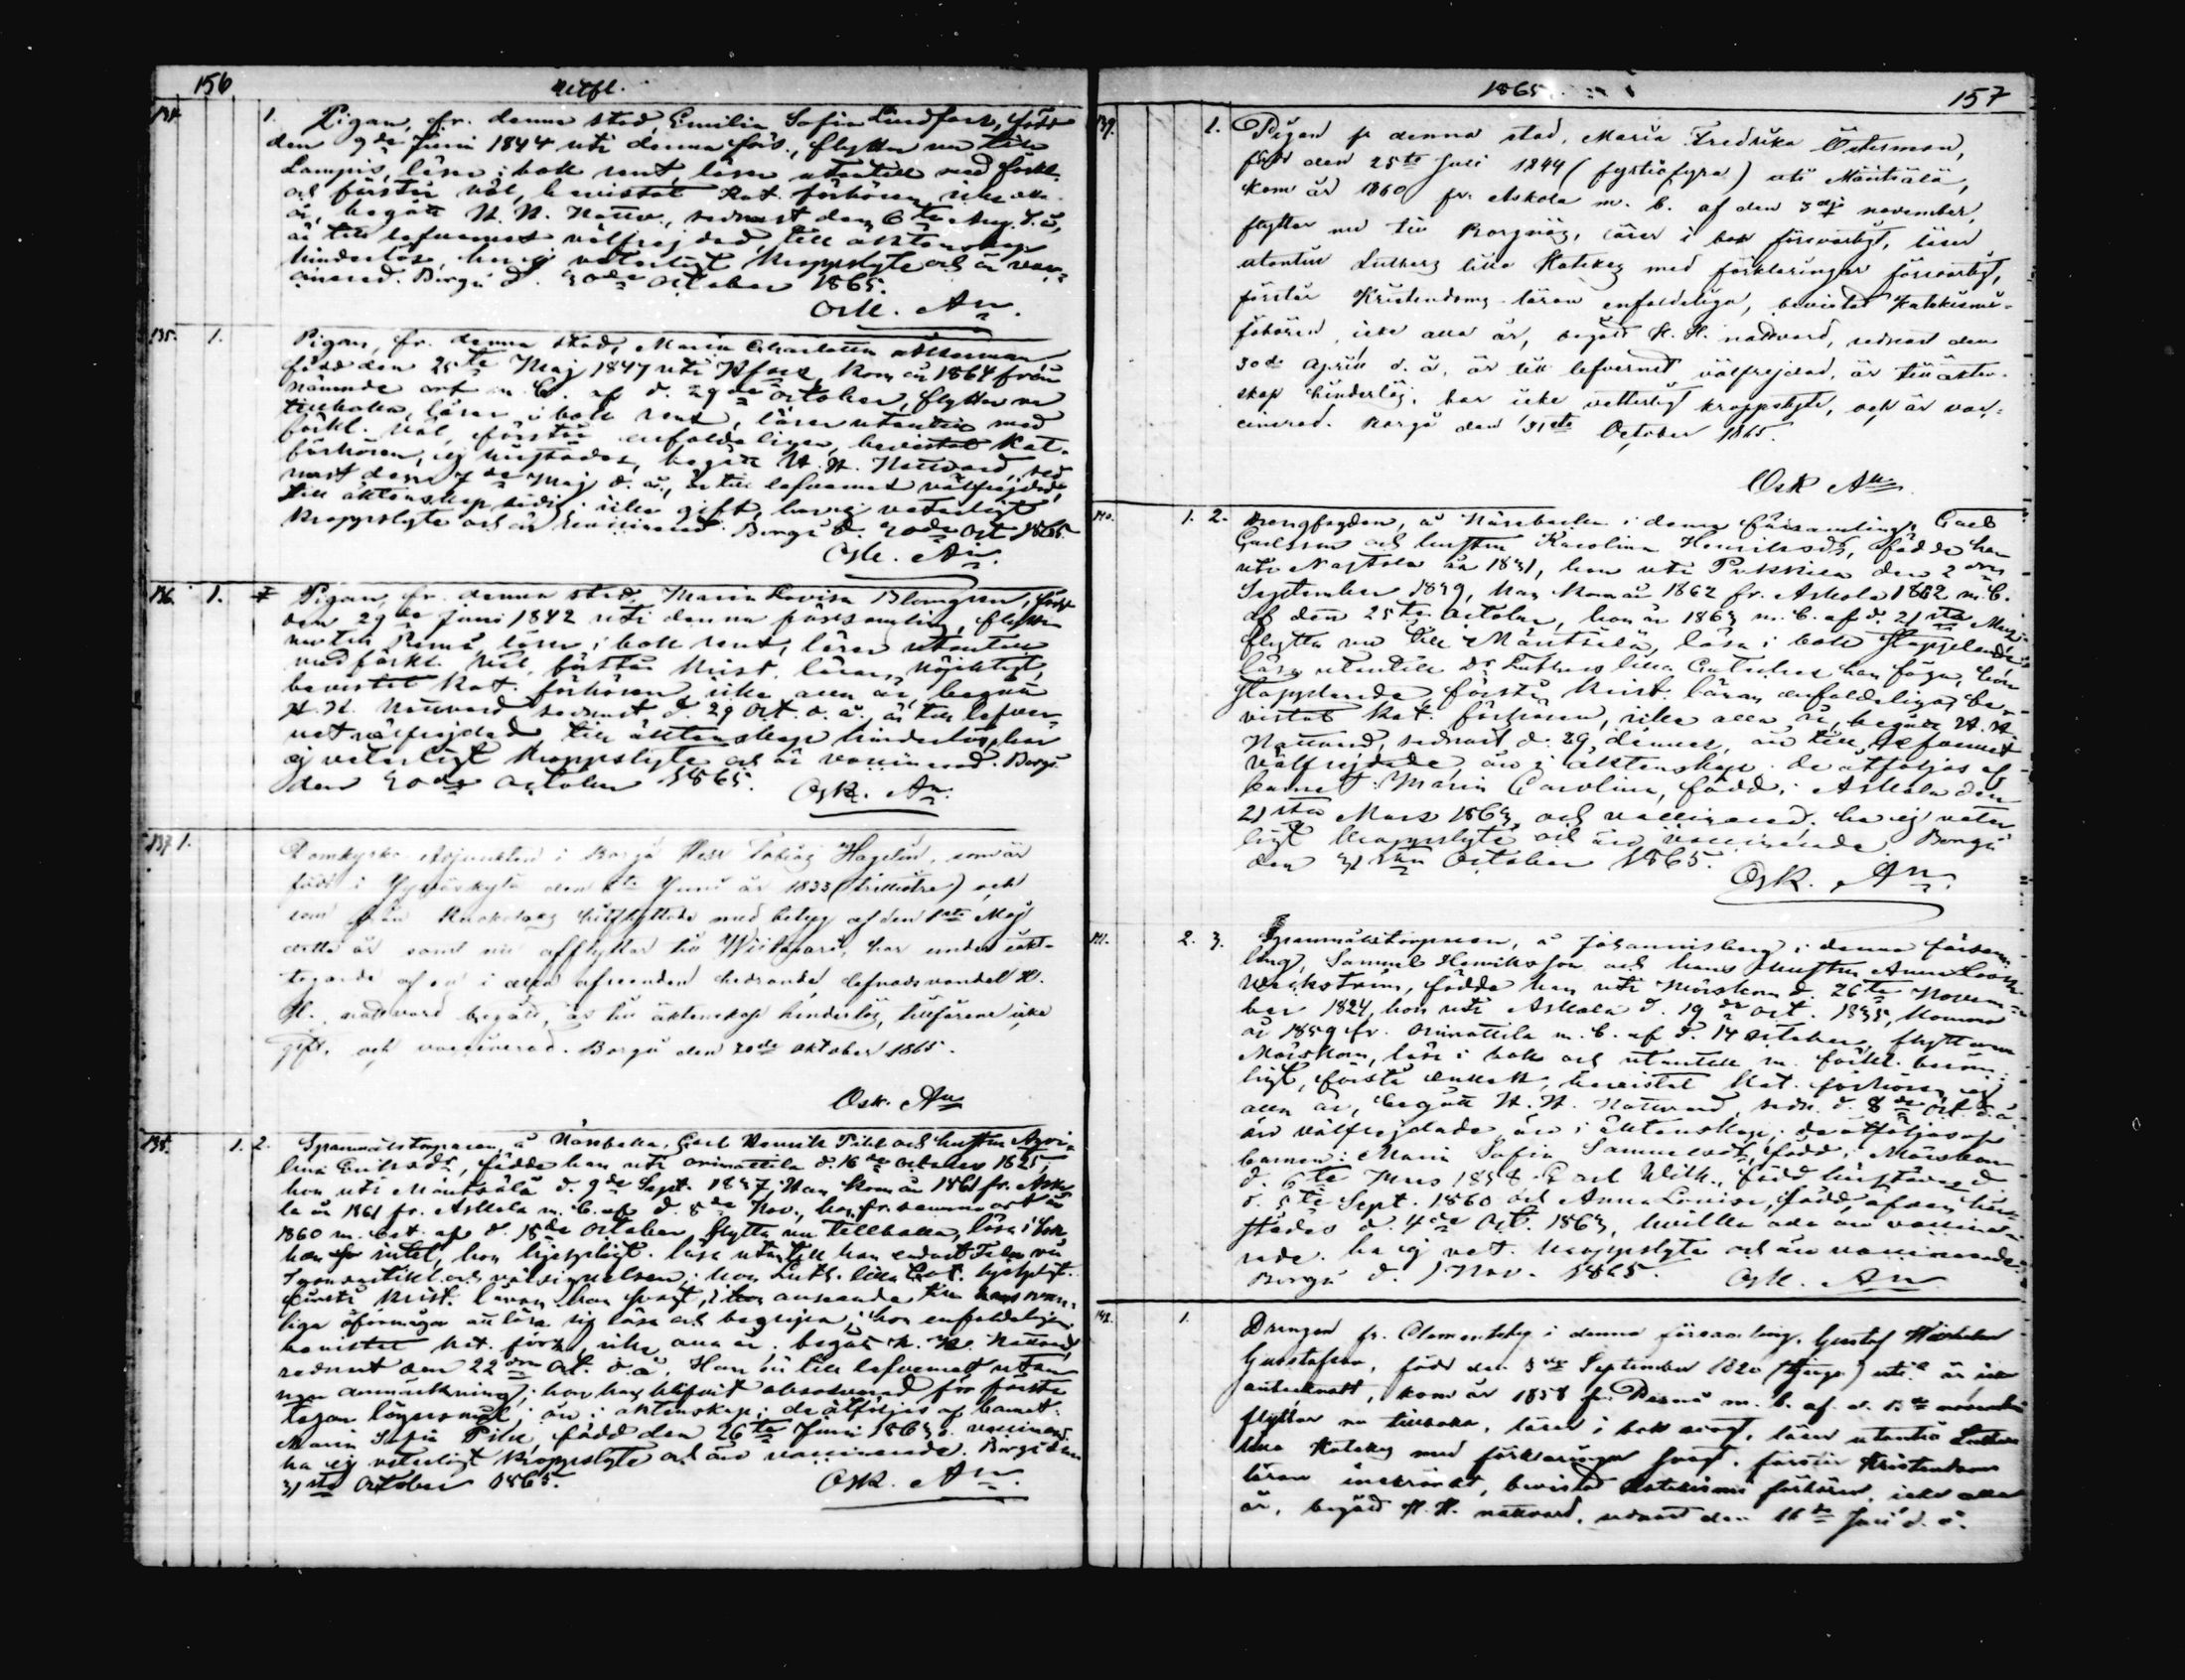 156 Utfl.
134. 1. Pigan, fr. denna stad, Emilia Sofia Lindfors, född
den 9de Juni 1844 uti denna förs., flyttar nu till
Lampis, läser i bok rent, läser utantill med förkl.
och förstår väl, bevistat Kat. förhören, icke alla
år, begått H. H. Nattv., sednast den 6te Aug. d. å.,
är till lefvernet välfrejdad, till äktenskap
hinderlös, har ej veterligt kroppslyte och är vac-
cinerad. Borgå d. 30de October 1865.
Osk. An.
135. 1. Pigan, fr. denna stad, Maria Charlotta Åkerman,
född den 25te Maj 1847 uti Hfors, kom år 1864 från
nämnde ort m. b. af d. 29de October, flyttar nu
tillbaka, läser i bok rent, läser utantill med
förkl. väl, förstår enfaldeligen, bevistat Kat.
förhören, ej härstädes, begått H. H. Nattvard, sed-
nast den 7de Maj d. å., är till lefvernet välfrejdad,
till äktenskap ledig, icke gift, har ej veterligt
kroppslyte och är vaccinerad. Borgå d. 30de Oct 1865.
Osk. An.
136. 1. Pigan, fr. denna stad, Maria Lovisa Blomgren, född
den 29de Juni 1842 uti denna församling, flyttar
nu till Pernå, läser i bok rent, läser utantill
med förkl. väl, förstår krist. läran nöjaktigt,
bevistat Kat. förhören, icke alla år, begått
H. H. Nattvard sednast d. 29 Oct. d. å., är till lefver-
net välfrejdad, till äktenskap hinderlös, har
ej veterligt kroppslyte och är vaccinerad. Borgå
den 30de October 1865. Osk. An.
137. 1. Domkyrko Adjunkten i Borgå Herr Tobias Hagelin, som är
född i Jyväskylä den Juni år 1833 (trettiotre) och
som från Ruokolaks hitflyttade med betyg af den 1sta Maj
detta år samt nu afflyttar till Wiitasaari, har under iakt-
tagande af en i alla afseenden hedrande lefnadsvandel H.
H. nattvard begått, är till äktenskap hinderlös, tillförene icke
gift, och vaccinerad. Borgå den 30de Oktober 1865.
Osk. An
138. 1. 2. Spannmålstorparen, å Näsebacka, Carl Henrik Pihl och hustru
lina Eriksdr, födde han uti Orimattila d. 16de October 1825,
hon uti Mäntsälä d. 9de Sept. 1837, Han kom år 1861 fr. Asko-
la år 1861 fr. Askola m. b. af d. 8de Nov., hon fr. samma ort år
1860 m. bet. af d. 18de October, flytta nu tillbaka, läsa i bok,
han intet, hon hjelpligt. läsa utantill han endast Fader vår
Trons artikl. och välsignelsen, hon Luth. lilla Cat. hjelpligt.
förstå krist. läran han svagt, i anseende till hans van-
liga oförmåga att lära sig läsa och begripa; hon enfaldeligen,
bevistat kat. förh. icke alla år, begått H. H. Nattvard,
sednast den 22dra Oct. d. å. Han är till lefvernet utan
någon anmärkning; hon har blifvit absolverad för första
resan lönskaläge; äro i äktenskap; de åtföljas af barnet:
Maria Sofia Pihl, född den 26te Juni 1863, vaccinerad.
ha ej veterligt kroppslyte och äro vaccinerade. Borgå den
31sta October 1865. Osk. An.
1865. 157
139. 1. Pigan fr denna stad, Maria Fredrika Österman,
född den 25te Juli 1844 (fyrtiofyra) uti Mäntsälä,
kom år 1860 fr. Askola m. b. af den 3dje november,
flyttar nu till Borgnäs, läser i bok försvarligt, läser
utantill Luthers lilla Katekes med förklaringar försvarligt,
förstår Kristendoms läran enfaldeligen, bevistat Katekismi-
förhören, icke alla år, begått H. H. nattvard, sednast den
30de April d. å., är till lefvernet välfrejdad, är till äkten-
skap hinderlös, har icke vetterligt kroppslyte, och är vac-
cinerad. Borgå den 31sta October 1865.
Osk An
140. 1. 2. Rengfogden, å Näsebacka i denna församling, Carl
Carlsson och hustru Karolina Henriksdr, födde han
uti Nastola år 1831, hon uti Pukkila den 2dra
September 1839, Han kom år 1862 fr. Askola 1862 m. b.
af den 25te October, hon år 1863 m. b. af d. 21sta Mars,
flytta nu till Mäntsälä, läsa i bok stapplande,
läsa utantill Dr Luthers lilla Cateches han föga, hon
stapplande, förstå krist. läran enfaldeligen, be-
vistat kat. förhören, icke alla år, begått H. H.
Nattvard, sednast d. 29 dennes, äro till lefvernet
välfrejdade, äro i äktenskap. de åtföljas af
barnet: Maria Carolina, född i Askola den
21sta Mars 1863, och vaccinerad. ha ej veter-
ligt kroppslyte och äro vaccinerade. Borgå
den 31sta October 1865.
Osk. An.
141. 2. 3. Spannmålstorparen, å Johannisberg i denna försam-
ling, Samuel Henriksson och hans hustru Anna Lovisa
Weckström, födde han uti Mörskom d. 26te Novem-
ber 1824, hon uti Askola d. 19de Oct. 1835, komna
år 1859 fr. Orimattila m. b. af d. 14 October, flytta nu
Mörskom, läsa i bok och utantill m. förkl. beröm-
ligt, förstå enkelt, bevistat kat. förhören, ej
alla år, begått H. H. Nattvard, sedn. d. 8de Oct. d. å.
äro välfrejdade, äro i äktenskap; de åtföljas af
barnen: Maria Sofia Samuelsdt, född i Mörskom
d. 6te Mars 1858. Carl Wilh., född härstädes d
d. 5te Sept. 1860 och Anna Lovisa, född äfven här-
städes d. 4de Oct. 1863, hvilka alla äro vaccine-
rade. ha ej vet. kroppslyte och äro vaccinerade.
Borgå d. 1 Nov. 1865. Osk. An
142. 1. Drengen fr. Clementsby i denna församling, Gustaf Wilhelm
Gustafsson, född den 3dje September 1820 (tjugo) uti är icke
antecknadt, kom år 1858 fr. Pernå m. b. af d. november
flyttar nu tillbaka, läser i bok svagt, läser utantill Luthers
lilla Katekes med förklaringar svagt, förstår Kristendoms
läran inskränkt, bevistat Katekismi förhören, icke alla
år, begått H. H. nattvard, sednast den 16de Juli d. å.